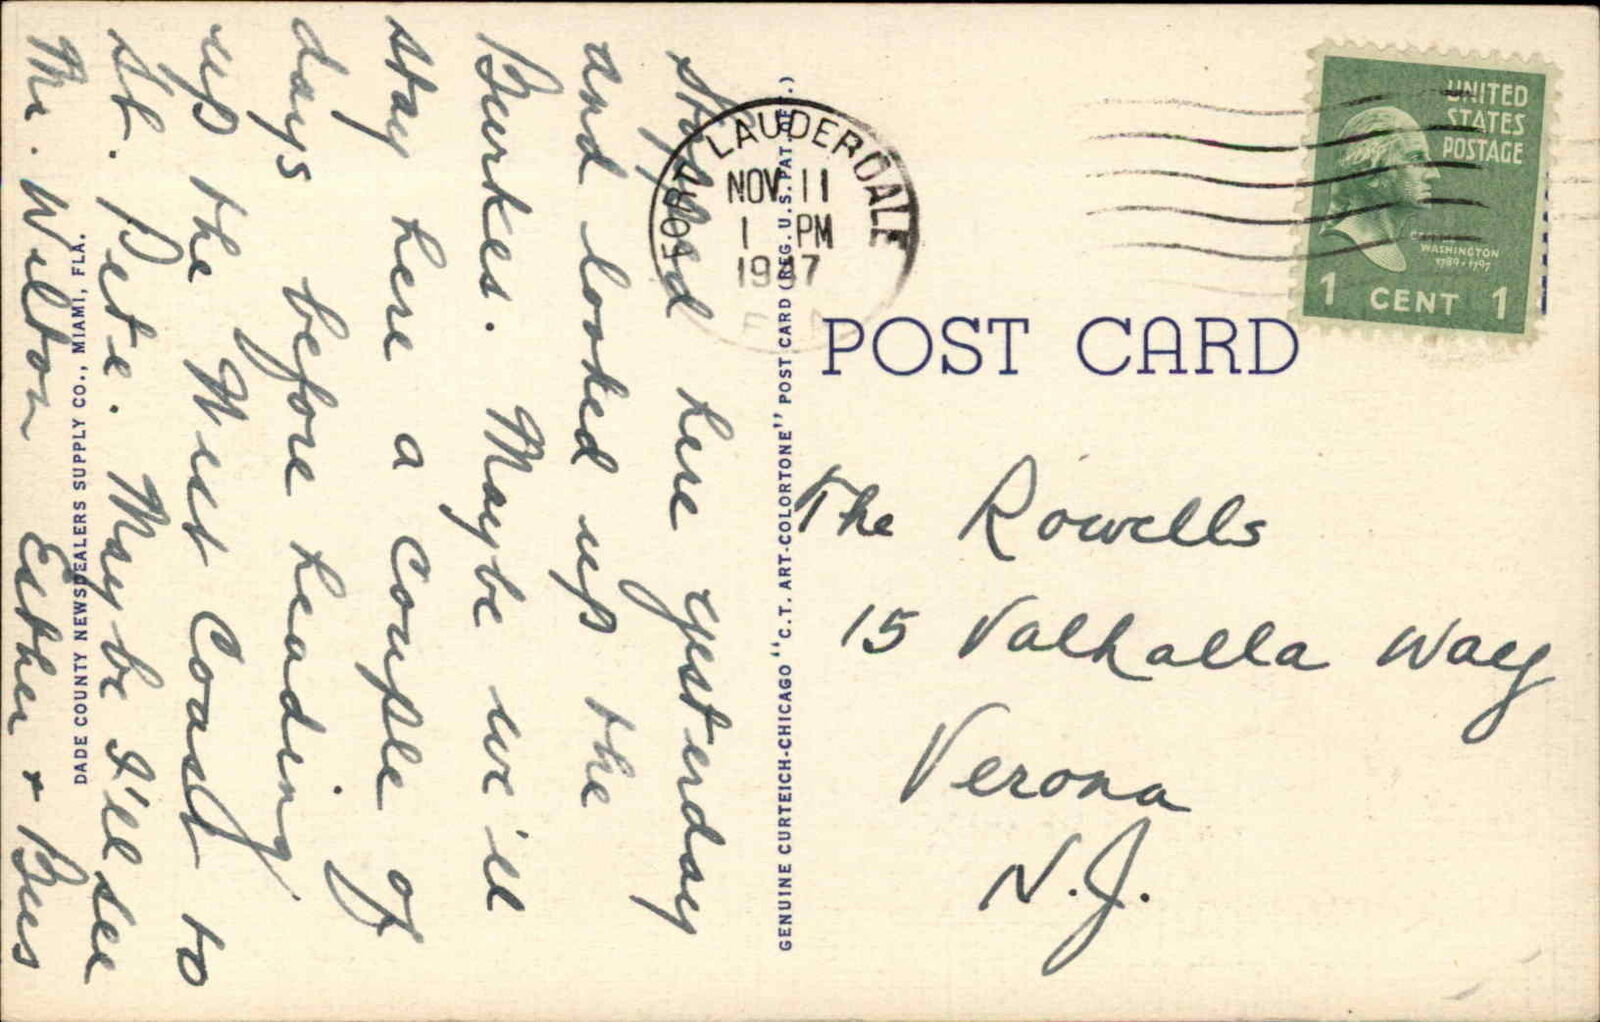 Stopped here yesterday
and looked up the
Burkes. Maybe we'll
stay here a couple of
days before heading
up the West Coast to
St. Pete. Maybe I'll see
Mr. Wilton
Esther + Bus
DADE COUNTY NEWSDEALERS SUPPLY CO., MIAMI, FLA.
GENUINE CURTEICH-CHICAGO "C.T. ART-COLORTONE" POST CARD (REG. U.S. PAT. OFF.)
FORT LAUDERDALE
NOV 11
1 PM
1947
UNITED
STATES
POSTAGE
WASHINGTON
1789-1797
1 CENT 1
POST CARD
The Rowells
15 Valhalla Way
Verona
N.J.